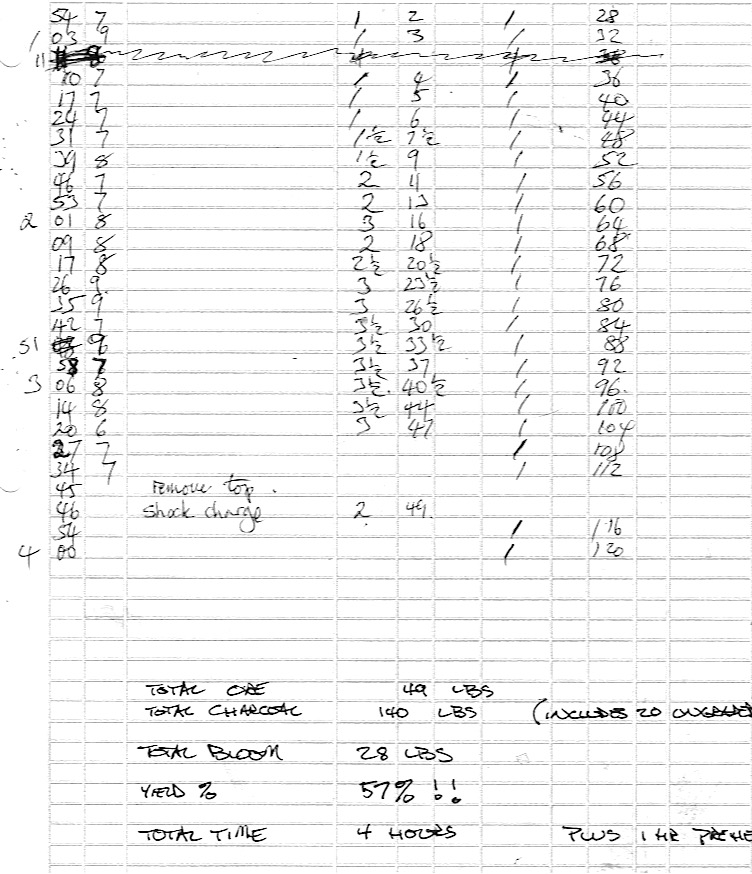 54 7 1 2 / 28
1 03 9 1 3 / 32
11
10 7 1 4 / 36
17 7 1 5 / 40
24 7 1 6 / 44
31 7 1½ 7½ / 48
39 8 1½ 9 / 52
46 7 2 11 / 56
53 7 2 13 / 60
2 01 8 3 16 / 64
09 8 2 18 / 68
17 8 2½ 20½ / 72
26 9 3 23½ / 76
35 9 3 26½ / 80
42 7 3½ 30 / 84
51 9 3½ 33½ / 88
58 7 3½ 37 / 92
3 06 8 3½ 40½ / 96
14 8 3½ 44 / 100
20 6 3 47 / 104
27 7 / 108
34 7 / 112
45 remove top.
46 shock charge 2 49
54 / 116
4 00 / 120
TOTAL ORE 49 LBS
TOTAL CHARCOAL 140 LBS (INCLUDES 20
TOTAL BLOOM 28 LBS
YIELD % 57% !!
TOTAL TIME 4 HOURS PLUS 1 HR PREHE